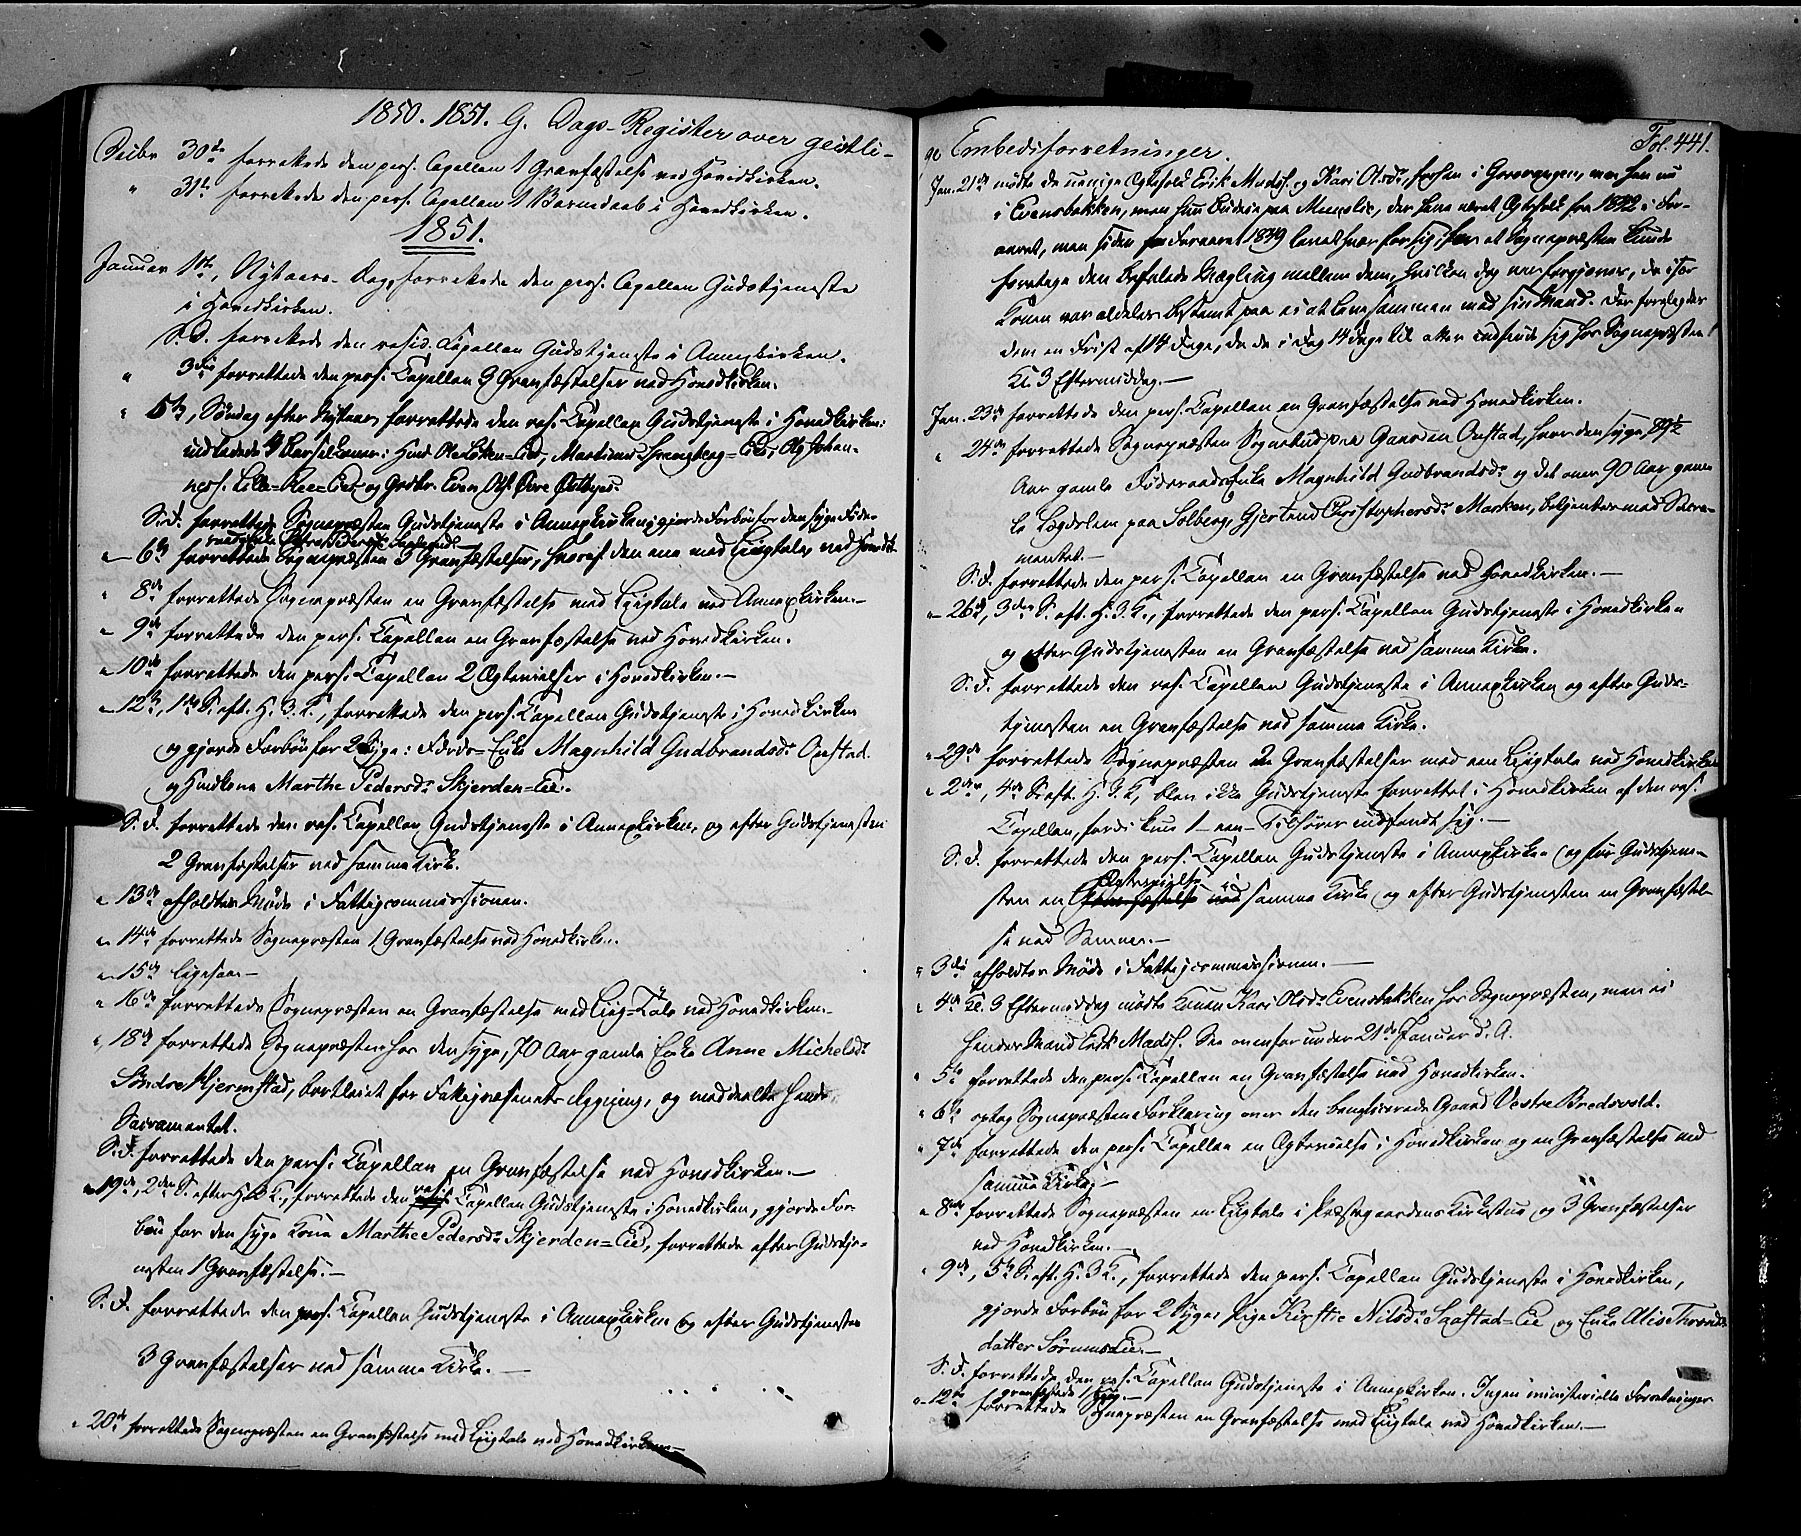 1850. 1851. G. Dags-Register over geistli-
Decbr 30te forrettede den pers. Capellan 1 Gravfæstelse ved Hovedkirken.
" 31te forrettede den pers. Capellan 1 Barnedaab i Hovedkirken.
1851.
Januar 1ste, Nytaars-Dag, forrettede den pers. Capellan Gudstjeneste
i Hovedkirken.
S. D. forrettede den resid. Capellan Gudstjeneste i Annexkirken.
" 3die forrettede den pers. Capellan 3 Gravfæstelser ved Hovedkirken.
" 5te, Søndag efter Nytaar, forrettede den res. Capellan Gudstjeneste i Hovedkirken:
indledede 4 Barselkoner: Hmd Ole Løken=Eie, Martinus Sprangberg=Eie, Ole Johan-
ness. Lille-Kee=Eie og Grdbr. Even Ols. Øvre Østbye.
S. D. forrettede Sognepræsten Gudstjeneste i Annexkirken, gjorde Forbøn for den syge Føde-
" 6te forrettede Sognepræsten 3 Gravfæstelser, hvoraf den ene med Liigtale, ved Hovedk.
" 8de forrettede Sognepræsten en Gravfæstelse med Liigtale ved Annexkirken.-
" 9de forrettede den pers. Capellan en Gravfæstelse ved Hovedkirken.
" 10de forrettede den pers. Capellan 2 Ægtevielser i Hovedkirken.-
" 12te, 1ste S. eft. H. 3 K., forrettede den pers. Capellan Gudstjeneste i Hovedkirken
og gjorde Forbøn for 2 Syge: Førds-Enke Magnhild Gudbrandsdr Onstad.
og Hmdkone Marthe Pedersdr Skjerden=Eie.
S. D. forrettede den res. Capellan Gudstjeneste i Annexkirken, og efter Gudstjenesten
2 Gravfæstelser ved samme Kirke.
" 13de afholdtes Møde i Fattigcommissionen.
" 14de forrettede Sognepræsten 1 Gravfæstelse ved Hovedkirken.
" 15de ligesaa.-
" 16de forrettede Sognepræsten en Gravfæstelse med Liig=Tale ved Hovedkirken.
" 18de forrettede Sognepræsten hos den syge, 70 Aar gamle Enke Anne Michelsdr
Søndre Hjermstad, bortleiet for Fattigvæsenets Regning, og meddeelte hende
Sacramentet.
S. D. forrettede den pers. Capellan en Gravfæstelse ved Hovedkirken.-
" 19de, 2den S. efter H. 3 K., forrettede den resid. Capellan Gudstjeneste i Hovedkirken, gjorde For-
bøn for den syge Kone Marthe Pedersdr Skjerden=Eie, forrettede efter Gudstje-
nesten 1 Gravfæstelse.-
S. D. forrettede den pers. Capellan Gudstjeneste i Annexkirken og efter Gudstjenesten
3 Gravfæstelser ved samme Kirke.-
" 20de forrettede Sognepræsten en Gravfæstelse med Liigtale ved Hovedkirken.-
ge Embedsforretninger. Fol. 441.
Jan. 21de mødte de uenige Ægtefolk Erik Madss. og Kari Olsdr, hvor han nu
i Evensbakken, men hun Budeie paa, der have været Ægtefolk fra 1842 i For-
aaret, men siden Foraaret 1849 levet hver for sig, for at Sognepræsten kunde
foretage den befalede Mægling mellem dem, hvilken dog var forgjæves, da især
Konen var aldeles bestemt paa ei at leve sammen med sin Mand. Der forelagdes
dem en Frist af 14 Dage, da de i Dag 14 Dage til atter indfinde sig hos Sognepræsten
Kl. 3 Eftermiddag.-
Jan. 23de forrettede den pers. Capellan en Gravfæstelse ved Hovedkirken.
" 24de forrettede Sognepræsten Sognebud paa Gaarden Onstad, hvor den syge, 89½
Aar gamle Føderaadsenke Magnhild Gudbrandsdr og det over 90 Aar gam-
le Lægdslem paa Solberg, Gjertrud Christophersdr Marken, betjentes med Sacra-
mentet.-
S. D. forrettede den pers. Capellan en Gravfæstelse ved Hovedkirken.-
" 26de, 3die S. eft. H. 3 K., forrettede den pers. Capellan Gudstjeneste i Hovedkirken
og efter Gudstjenesten en Gravfæstelse ved samme Kirke.
S. D. forrettede den res. Capellan Gudstjeneste i Annexkirken og efter Guds-
tjenesten en Gravfæstelse ved samme Kirke.
" 29de forrettede Sognepræsten 2 Gravfæstelser med een Liigtale ved Hovedkirken
" 2den, 4de S. eft. H. 3 K., blev ikke Gudstjeneste forrettet i Hovedkirken af den res.
Capellan, fordi kun 1 - een - Tilhører indfandt sig.-
S. D. forrettede den pers. Capellan Gudstjeneste i Annexkirken (og før Gudstjene-
sten en Ægtevielse i samme Kirke) og efter Gudstjenesten en Gravfæstel-
se ved Samme.-
" 3die afholdtes Møde i Fattigcommissionen.-
" 4de Kl. 3 Eftermiddag mødte Konen Kari Olsdr Evensbakken hos Sognepræsten, men ei
hendes Mand Erik Madss. See ovenfor under 21de Januar d. A.
" 5te forrettede den pers. Capellan en Gravfæstelse ved Hovedkirken.
" 6te optog Sognepræsten Forklaring over den benificerede Gaard Vestre Bredsvold.
" 7de forrettede den pers. Capellan en Ægtevielse i Hovedkirken og en Gravfæstelse ved
samme Kirke.-
" 8de forrettede Sognepræsten en Liigtale i Præstegaardens Kirkestue og 3 Gravfæstelser
ved Hovedkirken.-
" 9de, 5te S. eft. H. 3 K., forrettede den pers. Capellan Gudstjeneste i Hovedkirken,
gjorde Forbøn for 2 Syge: Pige Kirstie Nilsdr Saxstad=Eie og Enke Alis Thrond-
datter Sørumseie.-
S. D. forrettede den res. Capellan Gudstjeneste i Annexkirken. Ingen ministerielle Forretninger
gravfæstede 1 Liig.-
" 12te forrettede Sognepræsten en Gravfæstelse med Liigtale ved Hovedkirken.-